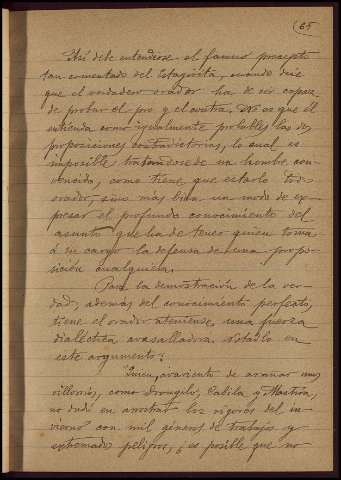 (65
Así debe entenderse el famoso precepto
tan comentado del Estagirita, cuando dice
que el verdadero orador ha de ser capaz
de probar el pro y el contra. No es que él
entienda como igualmente probables las dos
proposiciones contradictorias, lo cual es
imposible tratándose de un hombre con-
vencido, como tiene que estarlo todo
orador, sino más bien un modo de ex-
presar el profundo conocimiento del
asunto que ha de tener quien toma
á su cargo la defensa de una propo-
sición cualquiera.
Para la demostración de la ver-
dad, además del conocimiento perfecto,
tiene el orador ateniense, una fuerza
dialéctica avasalladora. Notadlo en
este argumento:
"Quien, avariento de arañar unos
villorrios, como Drongilo, Cabila y Mastira,
no dudó en arrostrar los rigores del in-
vierno con mil géneros de trabajos y
extremados peligros, ¿es posible que no